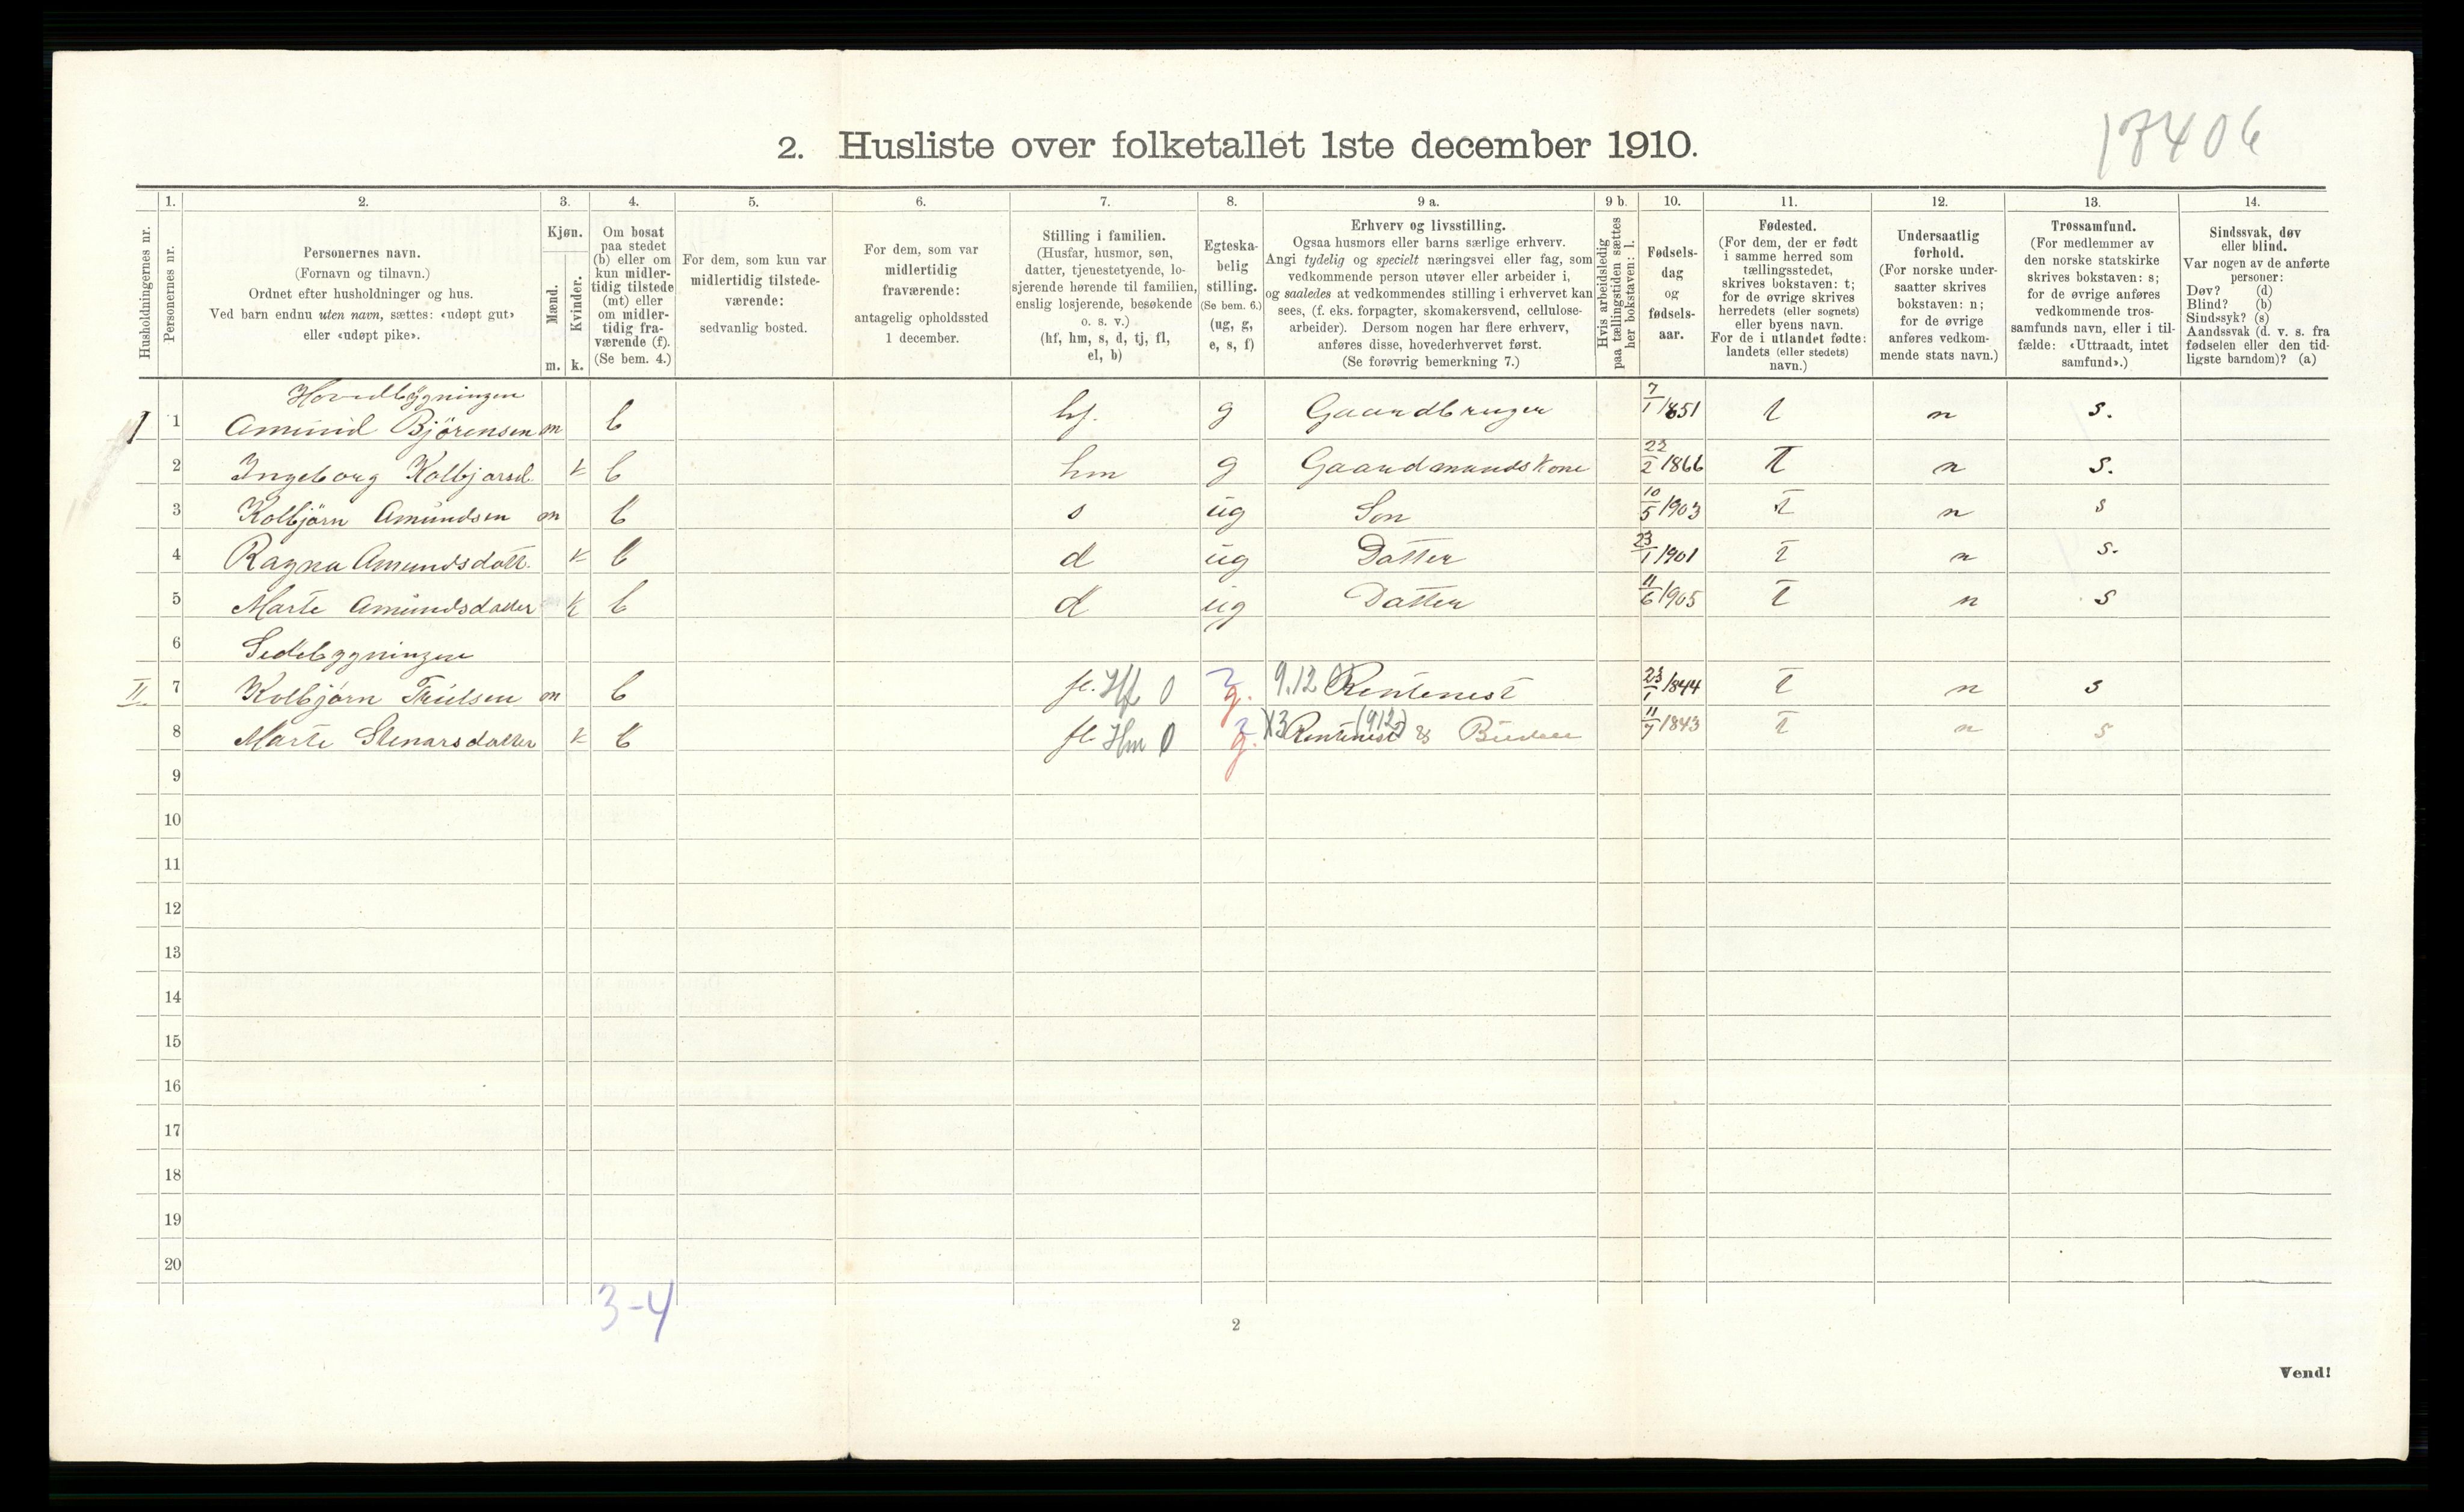 17406
2. Husliste over folketallet 1ste december 1910.
Husholdningernes nr.
1. 2. 3. 4. 5. 6. 7. 8. 9 a. 9 b. 10. 11. 12. 13. 14.
Personernes nr.
Personernes navn.
(Fornavn og tilnavn.)
Ordnet efter husholdninger og hus.
Ved barn endnu uten navn, sættes: «udøpt gut»
eller «udøpt pike».
Kjøn.
Mænd.
Kvinder.
m. k.
Om bosat
paa stedet
(b) eller om
kun midler-
tidig tilstede
(mt) eller
om midler-
tidig fra-
værende (f).
(Se bem. 4.)
For dem, som kun var
midlertidig tilstede-
værende:
sedvanlig bosted.
For dem, som var
midlertidig
fraværende:
antagelig opholdssted
1 december.
Stilling i familien.
(Husfar, husmor, søn,
datter, tjenestetyende, lo-
sjerende hørende til familien,
enslig losjerende, besøkende
o. s. v.)
(hf, hm, s, d, tj, fl,
el, b)
Egteska-
belig
stilling.
(Se bem. 6.)
(ug, g,
e, s, f)
Erhverv og livsstilling.
Ogsaa husmors eller barns særlige erhverv.
Angi tydelig og specielt næringsvei eller fag, som
vedkommende person utøver eller arbeider i,
og saaledes at vedkommendes stilling i erhvervet kan
sees, (f. eks. forpagter, skomakersvend, cellulose-
arbeider). Dersom nogen har flere erhverv,
anføres disse, hovederhvervet først.
(Se forøvrig bemerkning 7.)
Hvis arbeidsledig
paa tællingstiden sættes
her bokstaven: l.
Fødsels-
dag
og
fødsels-
aar.
Fødested.
(For dem, der er født
i samme herred som
tællingsstedet,
skrives bokstaven: t;
for de øvrige skrives
herredets (eller sognets)
eller byens navn.
For de i utlandet fødte:
landets (eller stedets)
navn.)
Undersaatlig
forhold.
(For norske under-
saatter skrives
bokstaven: n;
for de øvrige
anføres vedkom-
mende stats navn.)
Trossamfund.
(For medlemmer av
den norske statskirke
skrives bokstaven: s;
for de øvrige anføres
vedkommende tros-
samfunds navn, eller i til-
fælde: «Uttraadt, intet
samfund».)
Sindssvak, døv
eller blind.
Var nogen av de anførte
personer:
Døv? (d)
Blind? (b)
Sindssyk? (s)
Aandssvak (d. v. s. fra
fødselen eller den tid-
ligste barndom)? (a)
Hovedbygningen
I 1 Amund Björensen m b hf. g Gaardbruger 7/1 1851 t n s.
2 Ingeborg Kolbjørsd. k b hm g Gaardmandskone 22/2 1866 t n s.
3 Kolbjörn Amundsen m b s ug Sön 10/5 1903 t n s
4 Ragna Amundsdatt. k b d ug Datter 23/1 1901 t n s.
5 Marte Amundsdatter k b d ug Datter 11/6 1905 t n s
6 Sedebygningen
II 7 Kolbjörn m b fl. Hf 0 g. 9.12 Rentenest 23/1 1844 t n s
8 Marte Stenarsdatter k b fl. Hm 0 g. X3 Rentenest (912) 11/7 1843 t n s
9
10
11
12
13
14
15
16
17
18
19
20
3-4
2
Vend!